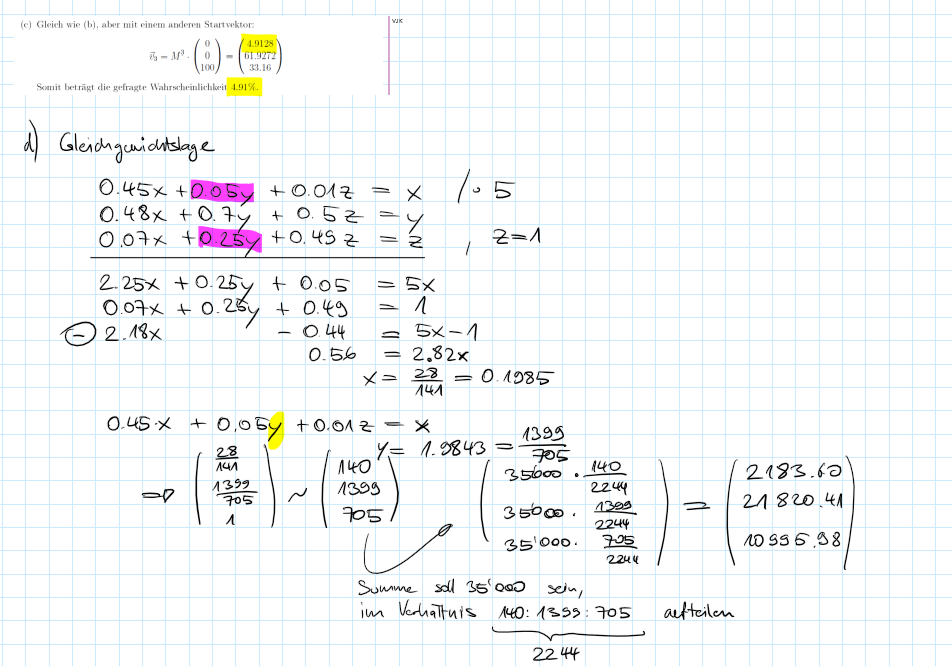 (c) Gleich wie (b), aber mit einem anderen Startvektor:
v⃗₃ = M³ · (0 0 100) = (4.9128 61.9272 33.16)
Somit beträgt die gefragte Wahrscheinlichkeit 4.91%.
VJK
d) Gleichgewichtslage
0.45x + 0.05y + 0.01z = x /· 5
0.48x + 0.7y + 0.5z = y
0.07x + 0.25y + 0.49z = z , z=1
2.25x + 0.25y + 0.05 = 5x
0.07x + 0.25y + 0.49 = 1
⊖ 2.18x - 0.44 = 5x-1
0.56 = 2.82x
x = 28/141 = 0.1985
0.45·x + 0.05y + 0.01z = x
y = 1.9843 = 1399/705
⇒ (28/141 1399/705 1) ~ (140 1399 705)
(35'000 · 140/2244 35'000 · 1399/2244 35'000 · 705/2244) = (2183.60 21820.41 10995.98)
Summe soll 35'000 sein,
im Verhältnis 140:1399:705 aufteilen
2244